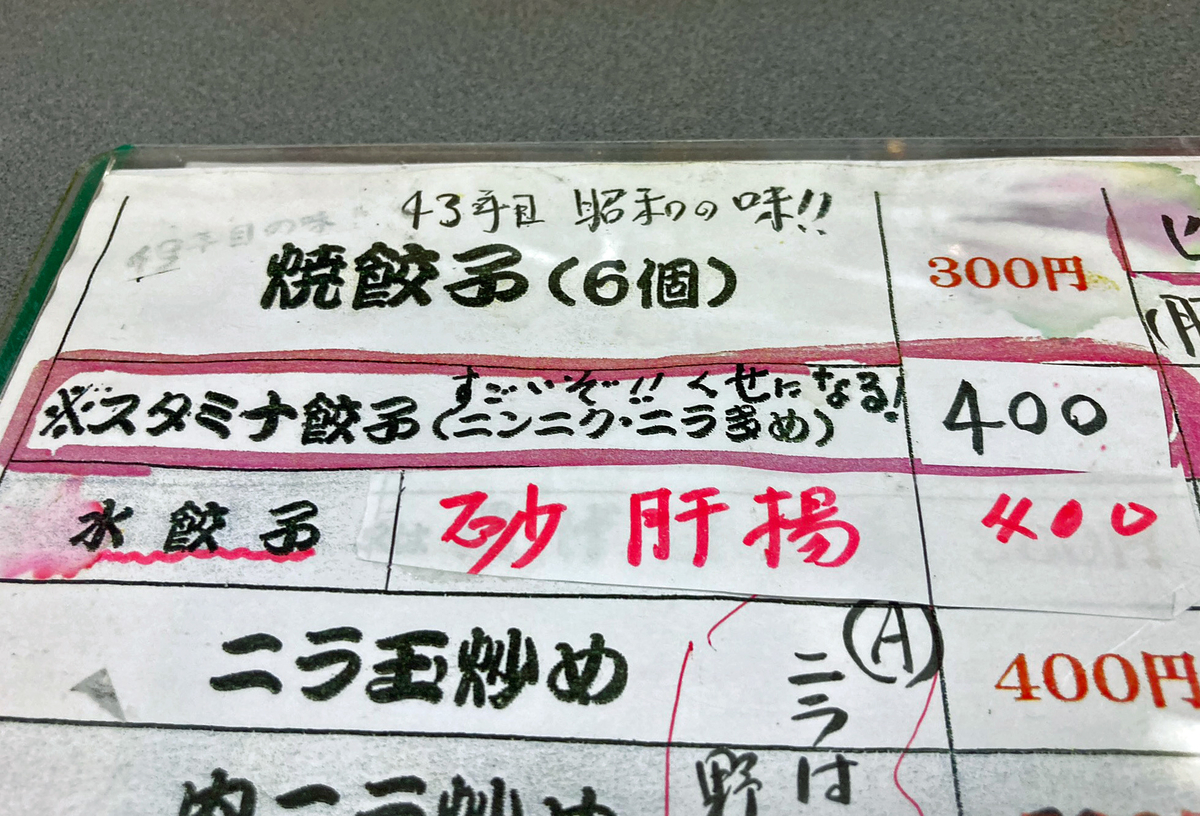 43年目 昭和の味!!
43年目の味
焼餃子(6個) 300円
すごいぞ!! くせになる!
※スタミナ餃子(ニンニク・ニラ多め) 400
水餃子 砂肝揚 400
ニラ玉炒め 400円
Ⓐ
ニラは
野
肉ニラ炒め